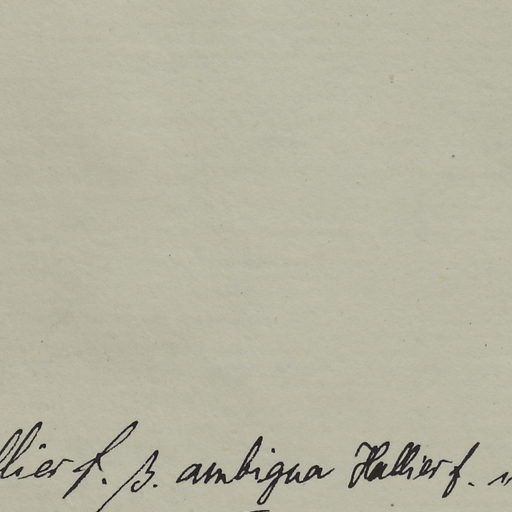 llier f. β. ambigua Hallier f.